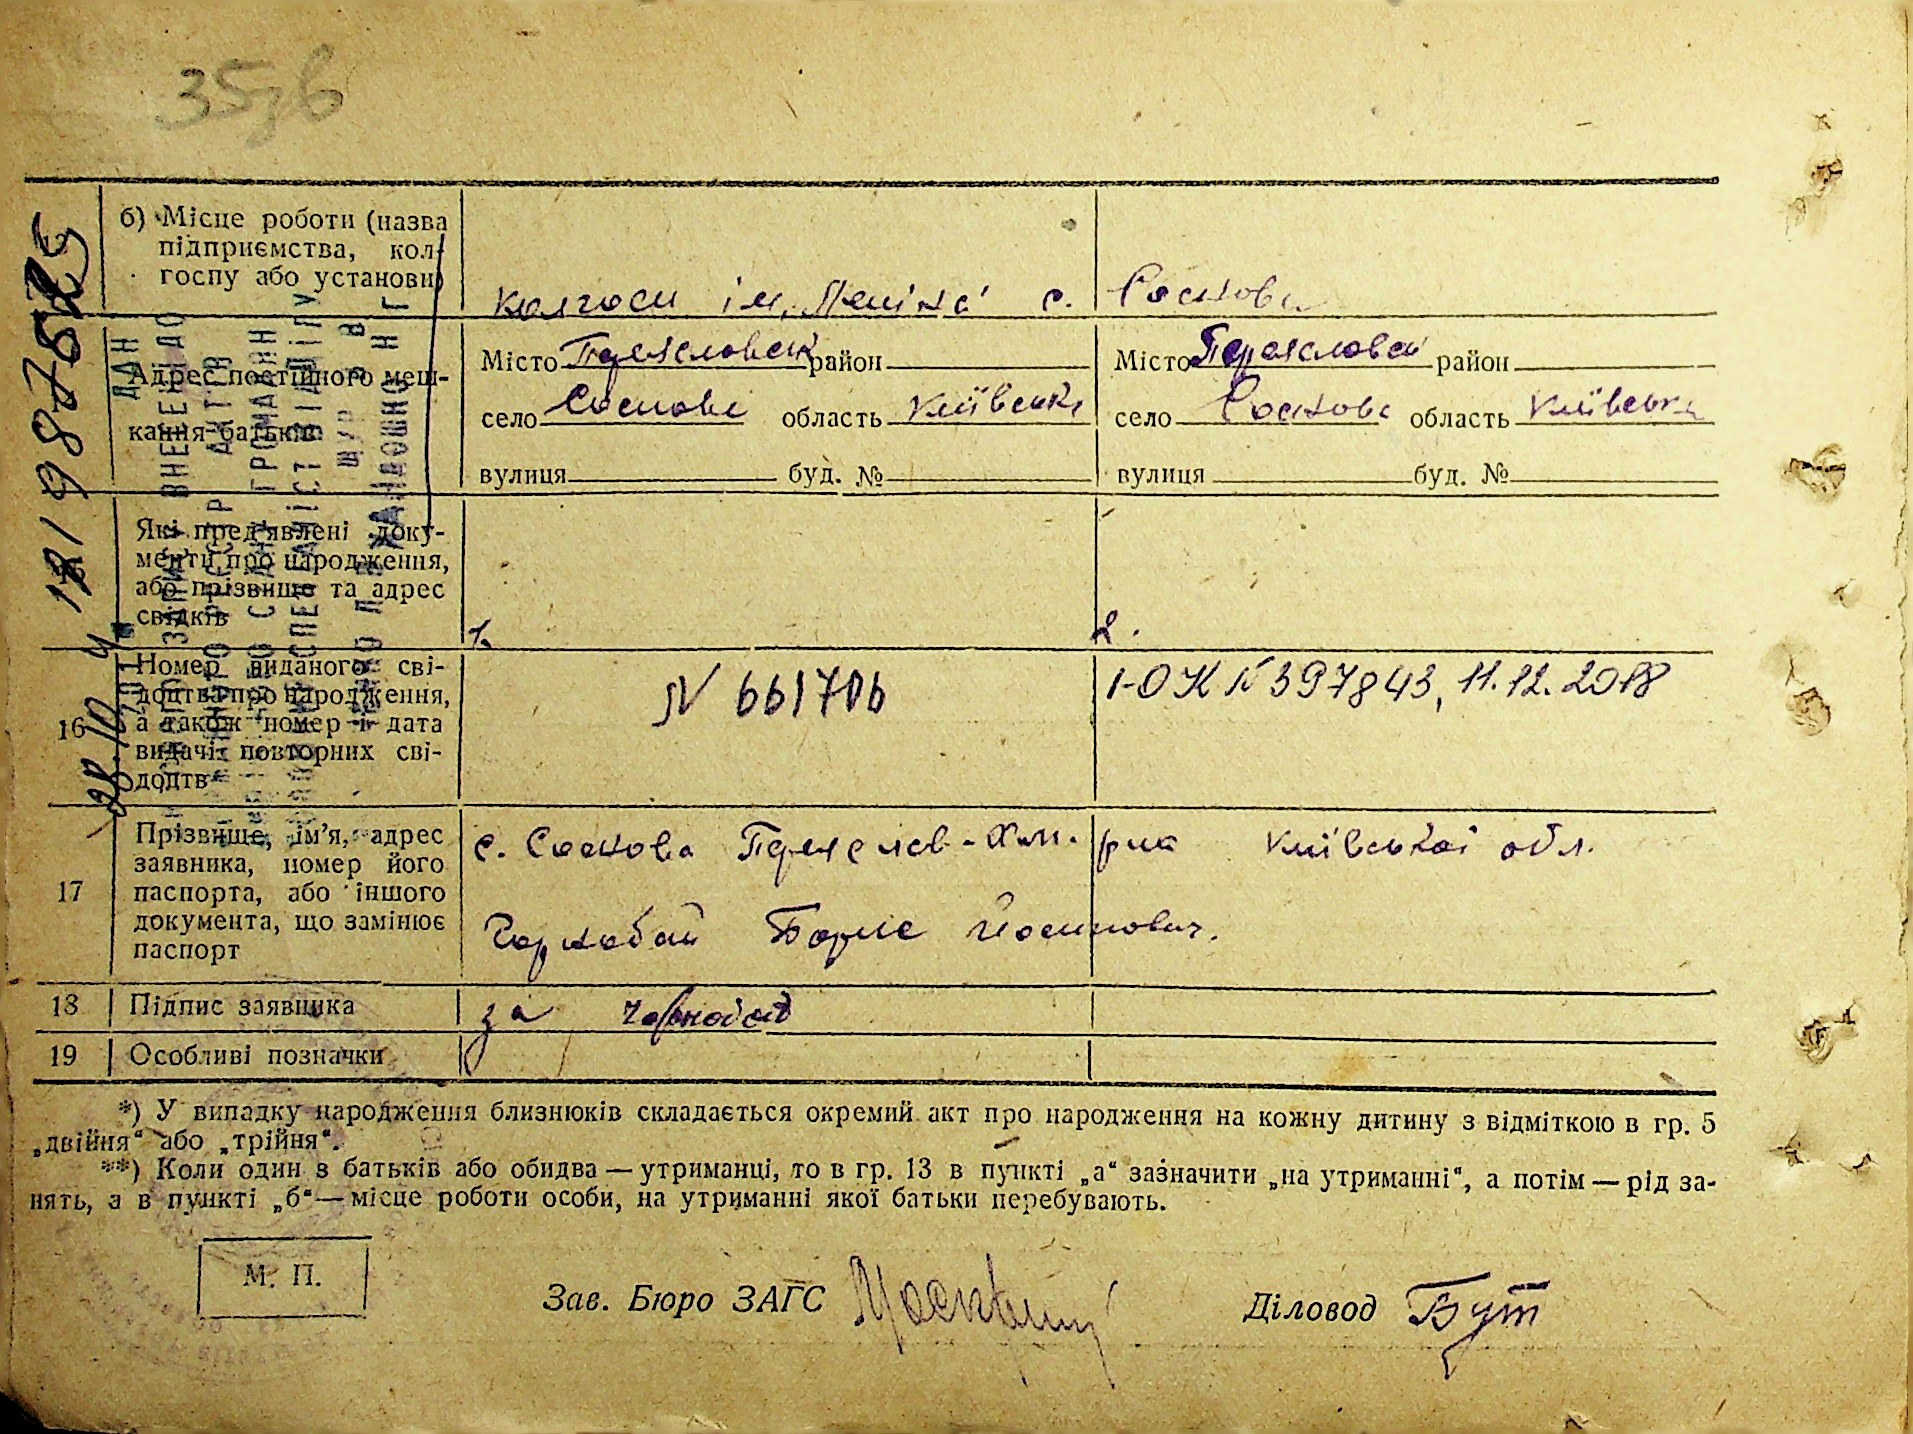 35зв
б) Місце роботи (назва
підприємства, кол-
госпу або установи)
колгосп ім. Леніна с. Соснова
Адрес постійного меш-
кання батьків
Місто Переяславськ район
село Соснова область Київська
вулиця буд. №
Місто Переяславськ район
село Соснова область Київська
вулиця буд. №
Які пред'явлені доку-
менти про народження,
або прізвище та адрес
свідків
1.
2.
16
Номер виданого сві-
доцтва про народження,
а також номер і дата
видачі повторних сві-
доцтв
N 661706
1-ОК N 397843, 11.12.2018
17
Прізвище, ім'я, адрес
заявника, номер його
паспорта, або іншого
документа, що замінює
паспорт
с. Соснова Переяслав-Хм. р-на Київської обл.
Чорнобай Борис Йосипович.
18 Підпис заявника
за Чорнобай
19 Особливі позначки
*) У випадку народження близнюків складається окремий акт про народження на кожну дитину з відміткою в гр. 5
„двійня“ або „трійня“.
**) Коли один з батьків або обидва — утриманці, то в гр. 13 в пункті „а“ зазначити „на утриманні“, а потім — рід за-
нять, а в пункті „б“ — місце роботи особи, на утриманні якої батьки перебувають.
М. П.
Зав. Бюро ЗАГС
Діловод Бут